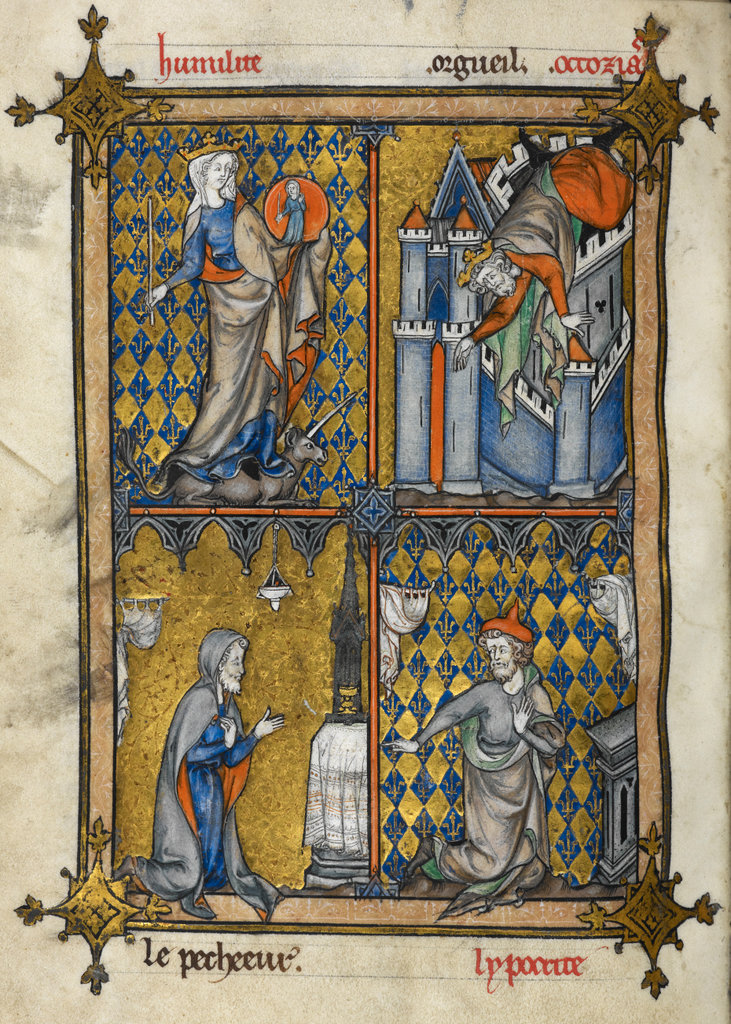 humilite .orgueil. .occozias
le pecheeur.
lypocrite